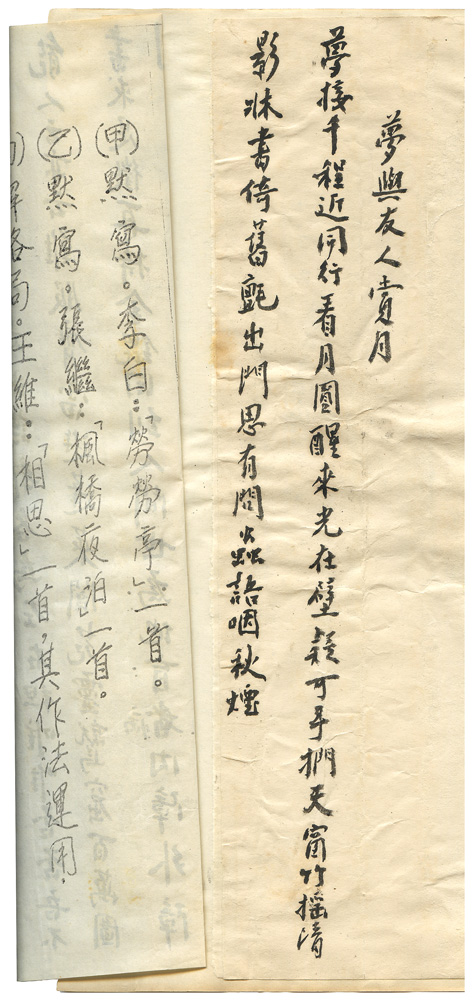 夢與友人賞月
夢接千程近同行看月圓醒來光在壁疑可手捫天窗竹搖清
影牀書倚舊氈出門思有問蟲語咽秋煙
(甲)默寫。李白:「勞勞亭」一首。
(乙)默寫。張繼:「楓橋夜泊」一首。
局。王維:「相思」一首,其作法運用.